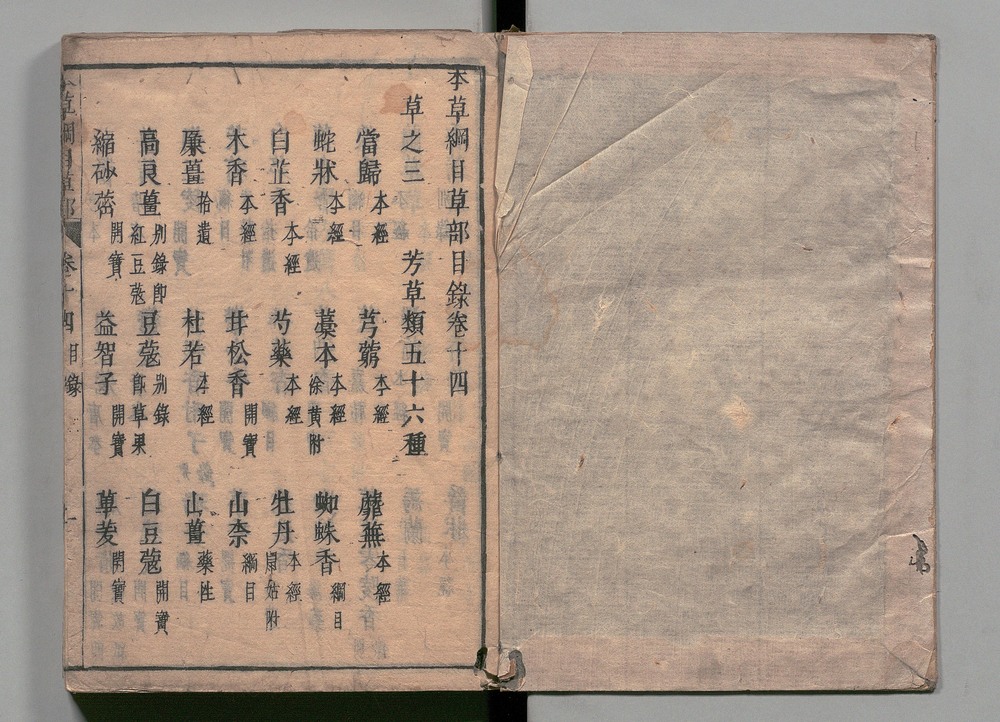 本草綱目草部目錄卷十四
草之三　芳草類五十六種
當歸 本經　芎藭 本經　蘼蕪 本經
蛇牀 本經　藁本 本經 徐黃附　蜘蛛香 綱目
白芷香 本經　芍藥 本經　牡丹 本經 鼠姑附
木香 本經　甘松香 開寶　山柰 綱目
廉薑 拾遺　杜若 本經　山薑 藥性
高良薑 別錄即紅豆蔻　豆蔻 別錄即草果　白豆蔻 開寶
縮砂蔤 開寶　益智子 開寶　蓽茇 開寶
本草綱目草部　卷十四目錄　一